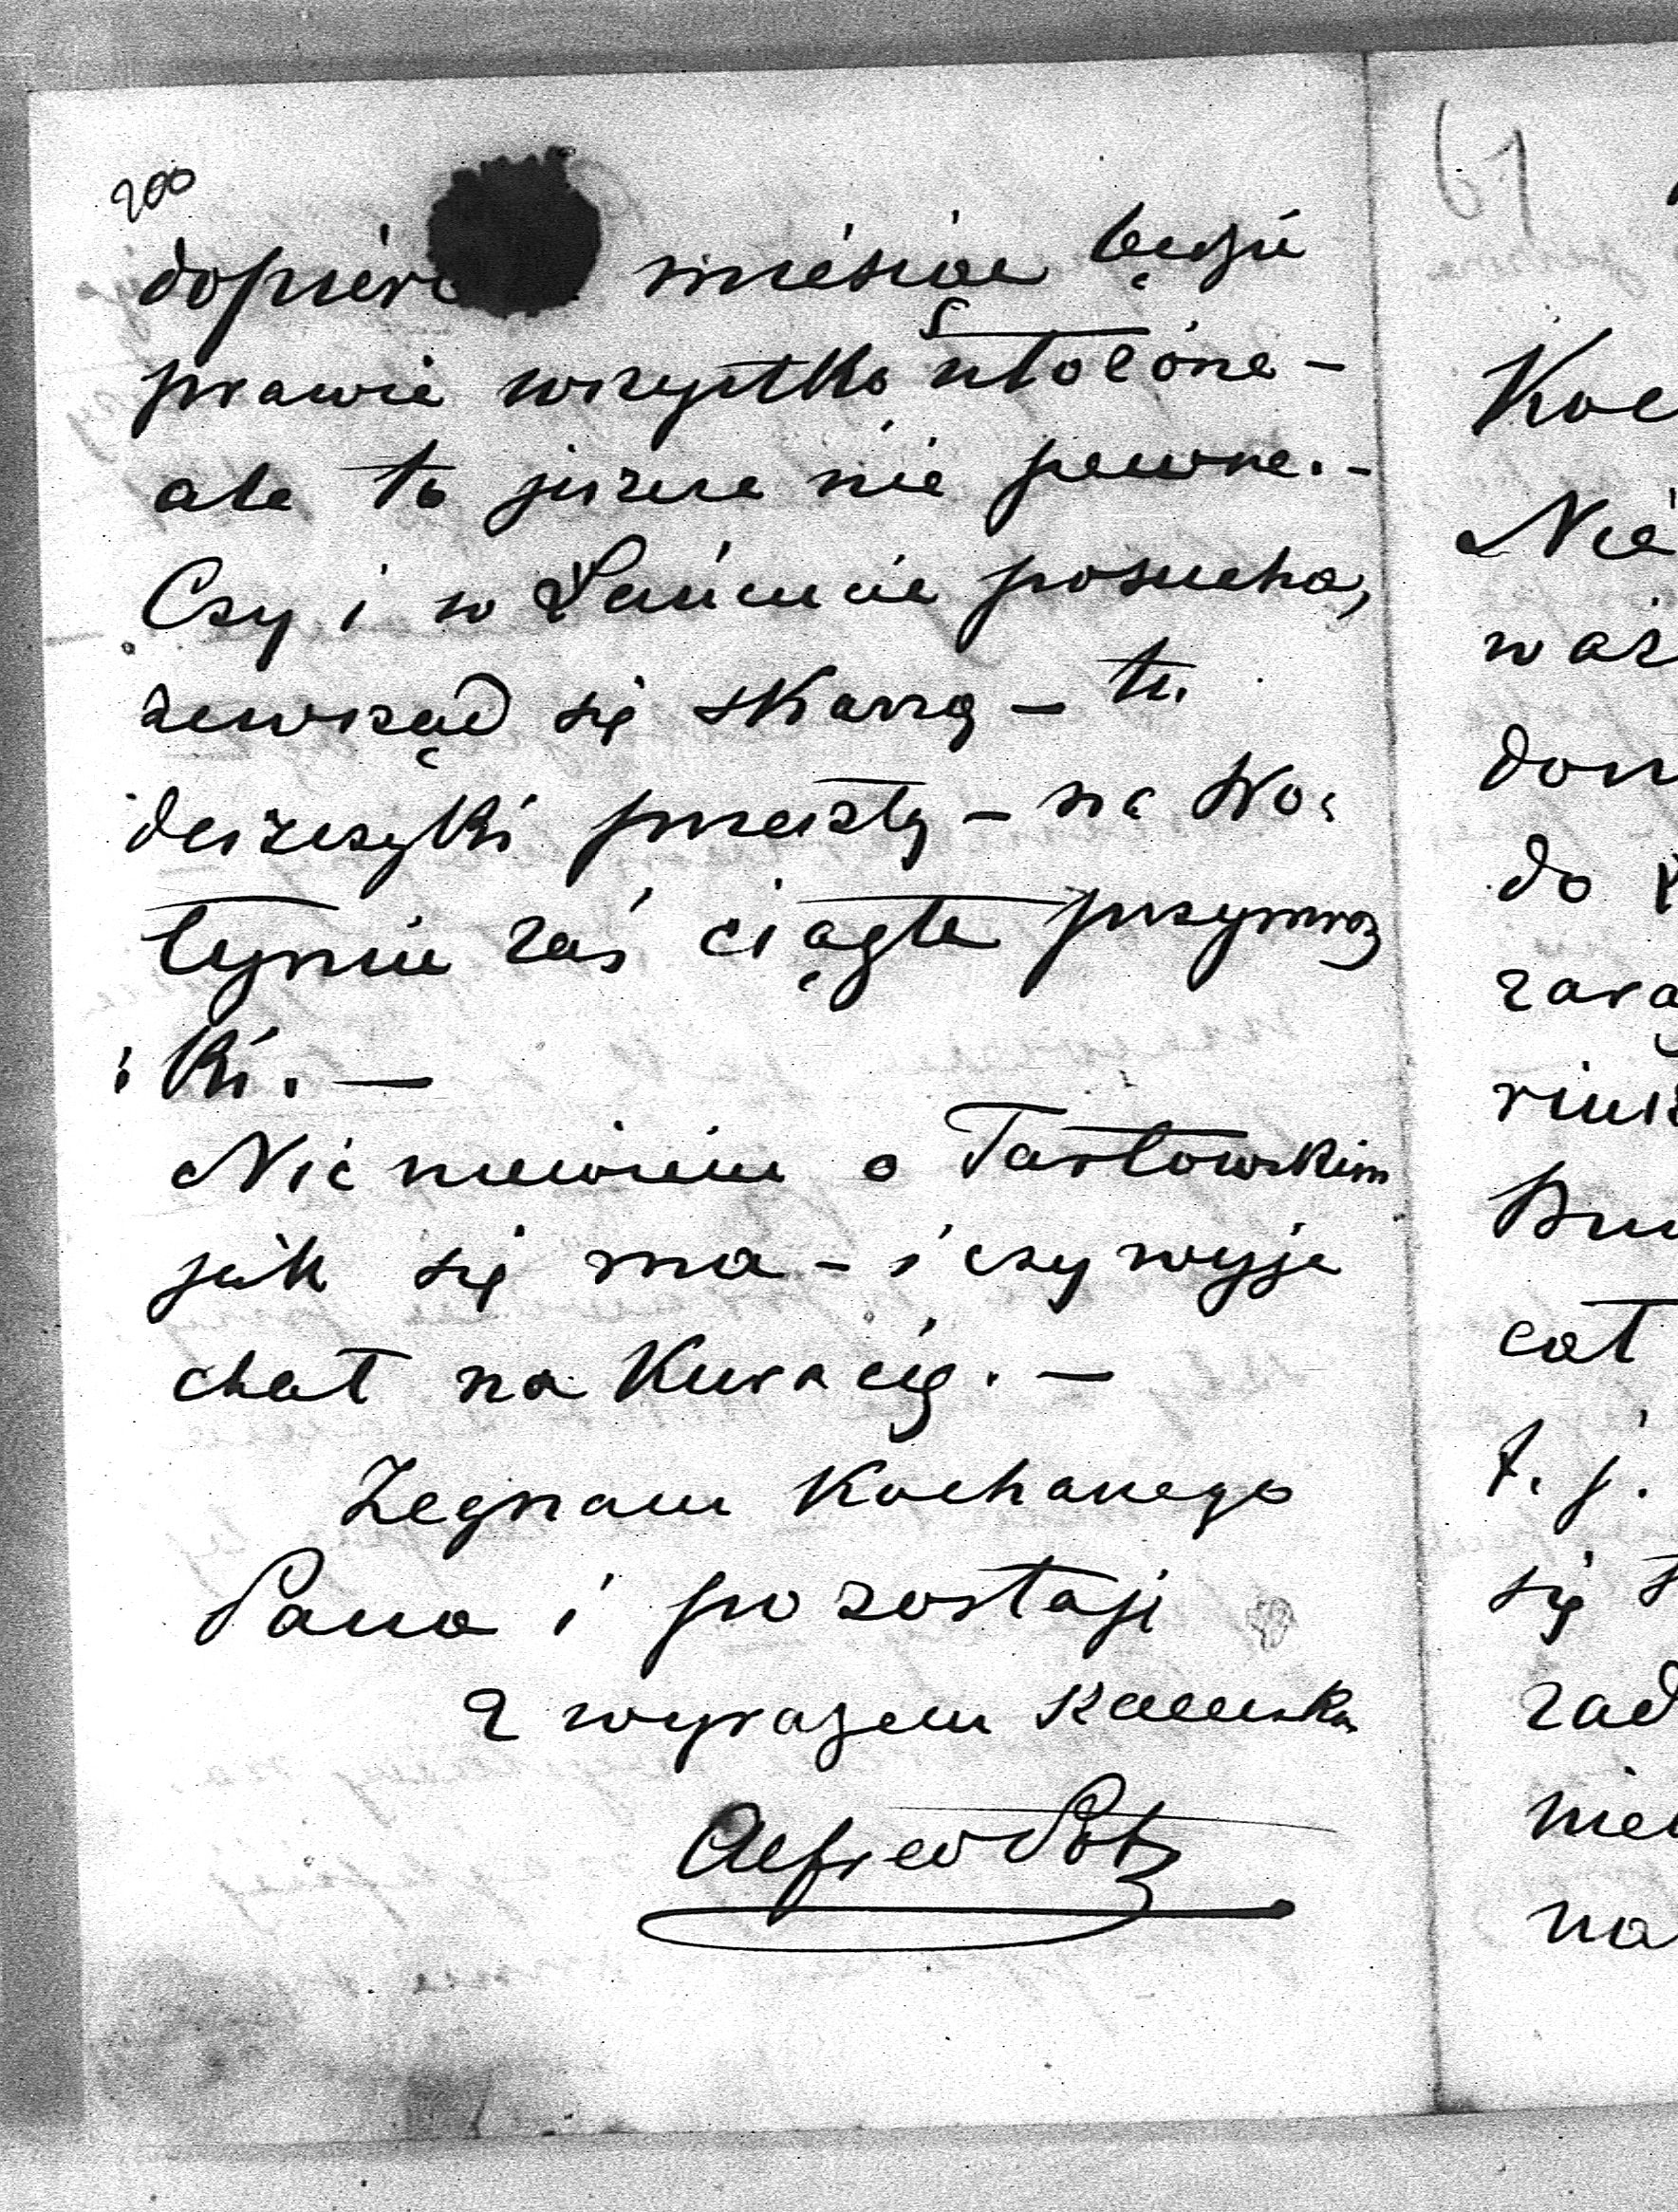 200
dopiero miesiąc będzie
prawie wszystko
ale to jeszcze nie pewne. -
Czy i w Łańcucie posucha,
zewsząd się skarzą - tu
deszczyki przeszły - na Wo-
łyniu zaś ciągłe przymroz
: ki. —
Nic niewiem o Tarłowskim
jak się ma - i czy wyje
chał na Kuracię. —
Żegnam Kochanego
Pana i pozostaję
z wyrazem szacunku
Alfred Pot
61
Koc
Nie
waż
dom
do
zara
cał
t. j.
się
zad
nie
na